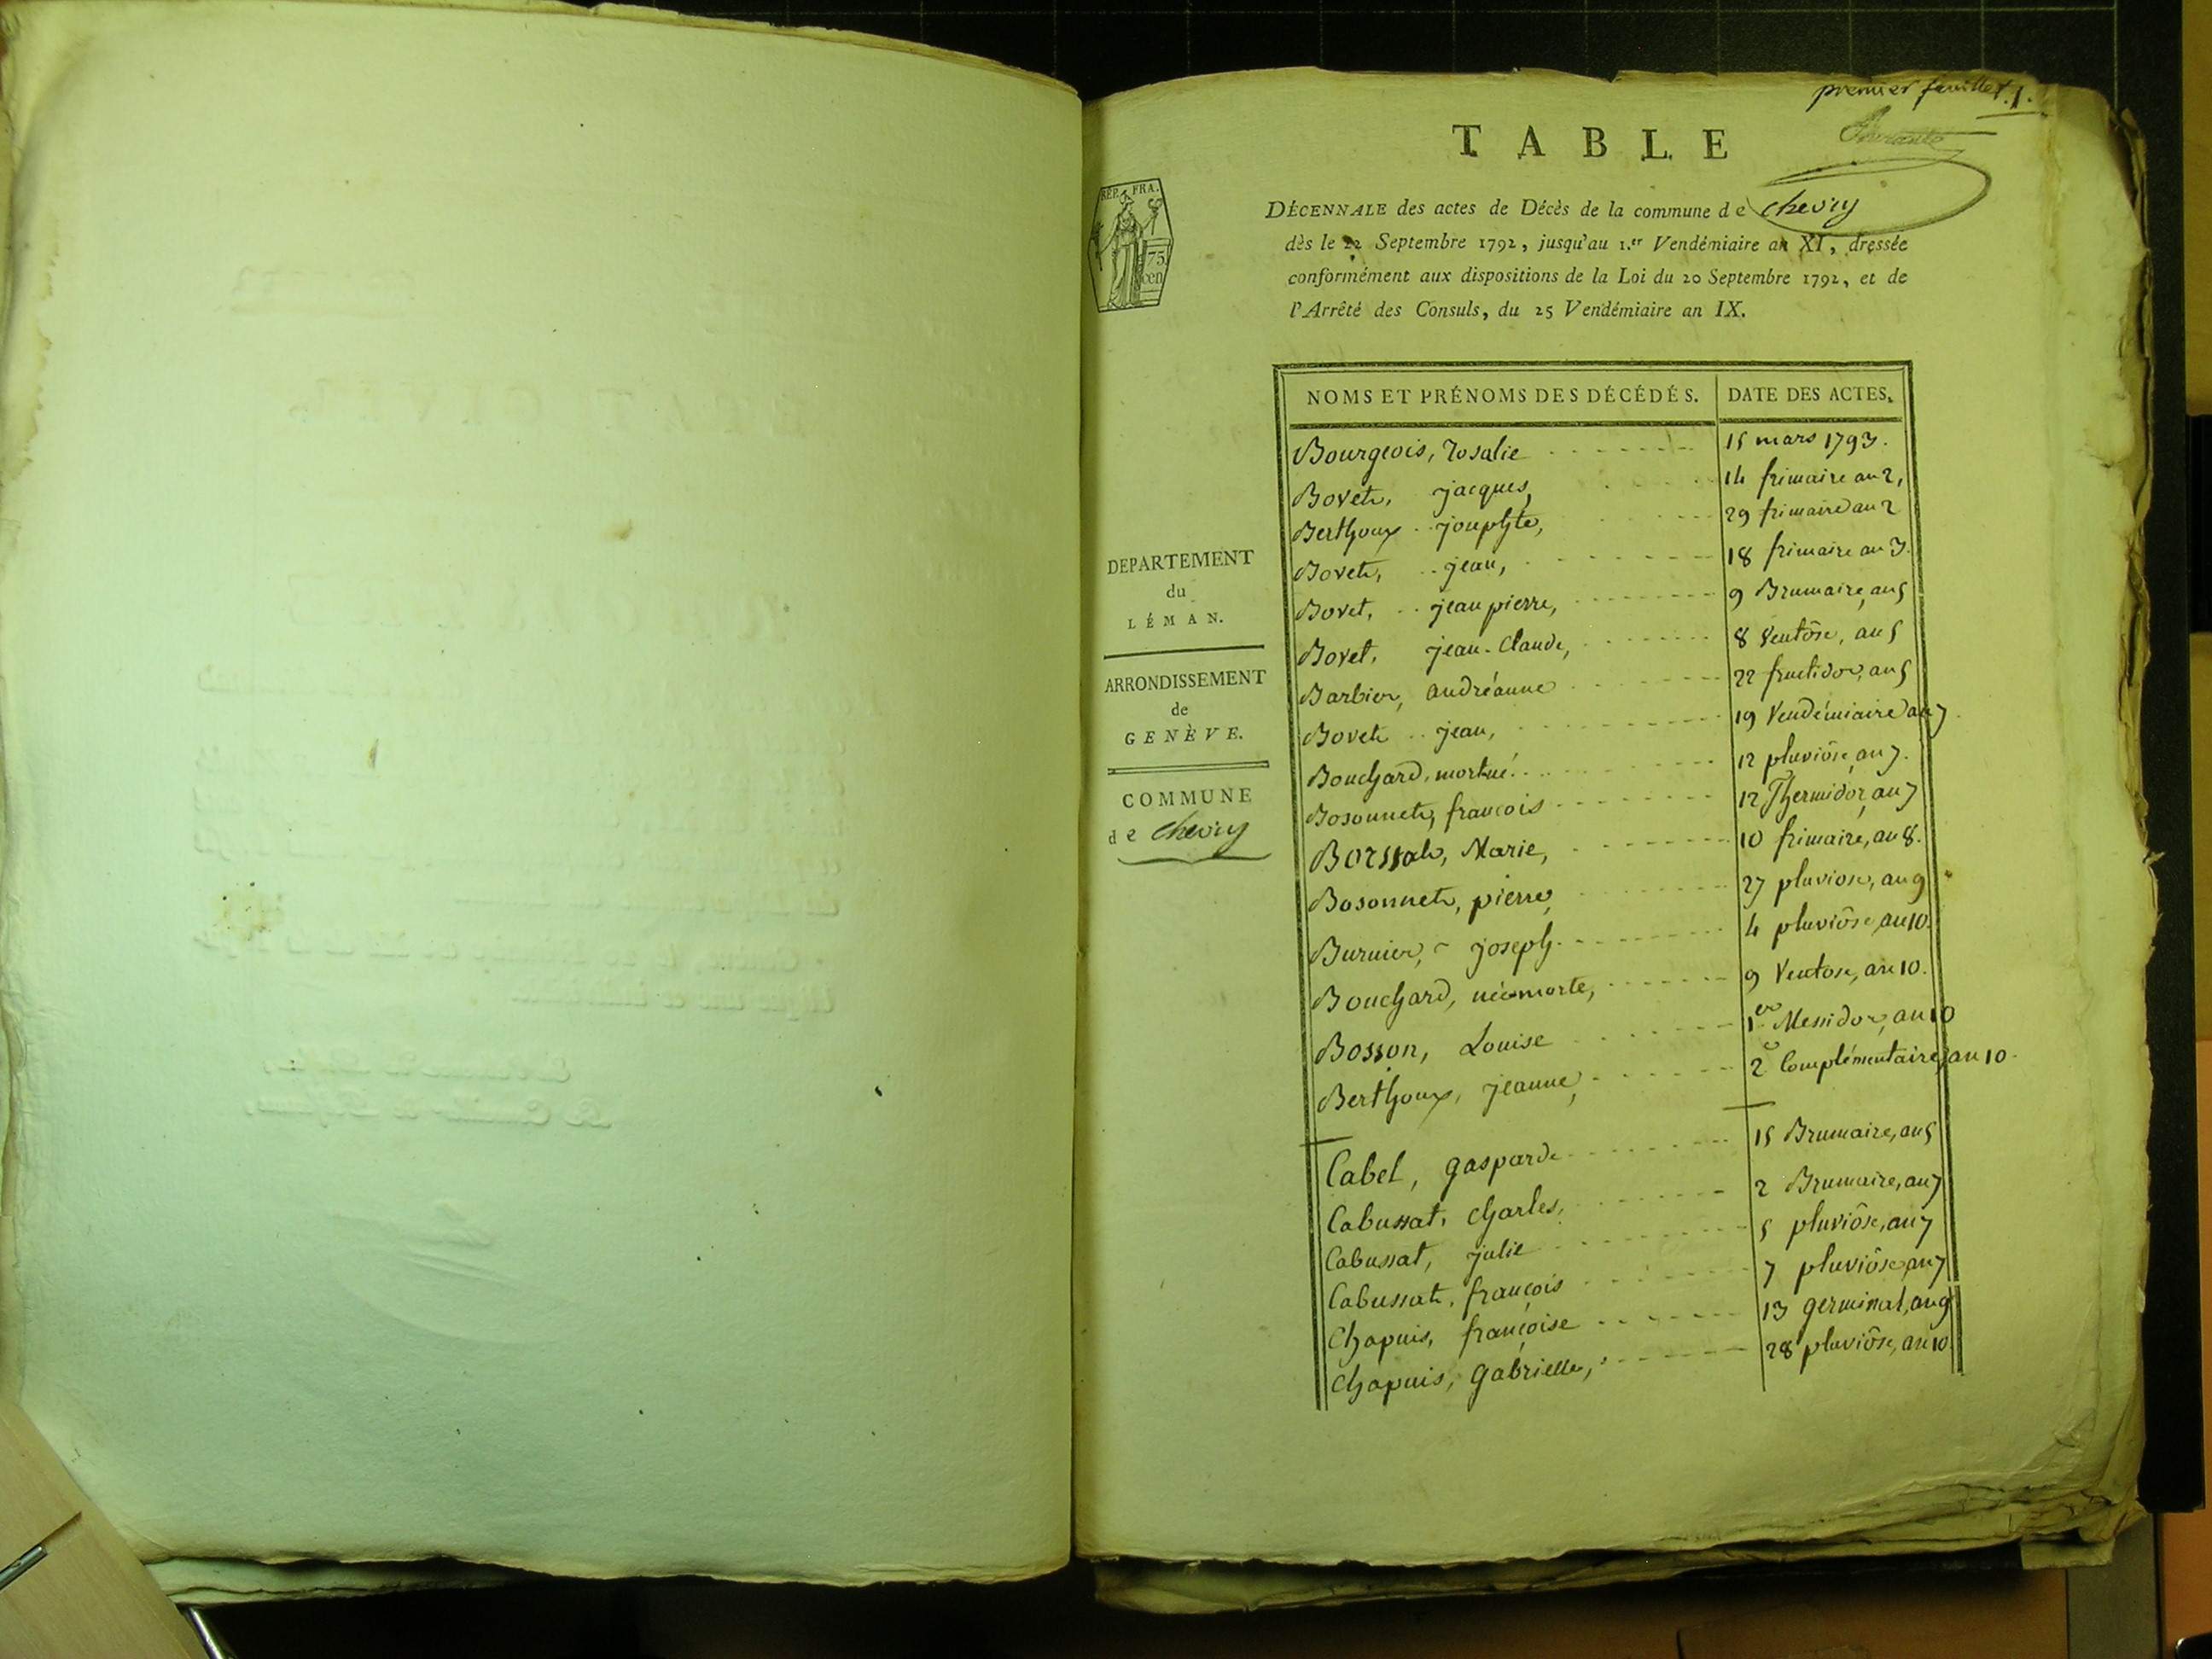 premier feuillet. 1.
TABLE
DÉCENNALE des actes de Décès de la commune de chevry
dès le 22 Septembre 1792, jusqu'au 1.er Vendémiaire an XI, dressée
conformément aux dispositions de la Loi du 20 Septembre 1792, et de
l'Arrêté des Consuls, du 25 Vendémiaire an IX.
REP. FRA.
75
cen
DEPARTEMENT
du
LÉMAN.
ARRONDISSEMENT
de
GENÈVE.
COMMUNE
de chevry
NOMS ET PRÉNOMS DES DÉCÉDÉS. DATE DES ACTES.
Bourgeois, rosalie 15 mars 1793.
Bovet, jacques, 14 frimaire an 2,
Berthoux 29 frimaire an 2
Bovet, jean, 18 frimaire an 3.
Bovet, jean pierre, 9 Brumaire, an 5
Bovet, jean-Claude, 8 Ventôse, an 5
Barbier, andréanne 22 fructidor, an 5
Bovet jean, 19 Vendémiaire an 7
Bouchard, mortné. 12 pluviôse, an 7.
Bosonnet, françois 12 Thermidor, an 7
Borssat, Marie, 10 frimaire, an 8.
Bosonnet, pierre, 27 pluviose, an 9
Burnier, joseph. 4 pluviôse, an 10.
Bouchard, née morte, 9 Ventose, an 10.
Bosson, Louise 1er Messidor, an 10
Berthoux, jeanne, 2e Complémentaire, an 10.
Cabel, gasparde 15 Brumaire, an 5
Cabussat, charles, 2 Brumaire, an 7
Cabussat, julie 5 pluviôse, an 7
Cabussat, françois 7 pluviôse, an 7
Chapuis, françoise 13 germinal, an 9
Chapuis, Gabrielle, 28 pluviôse, an 10.